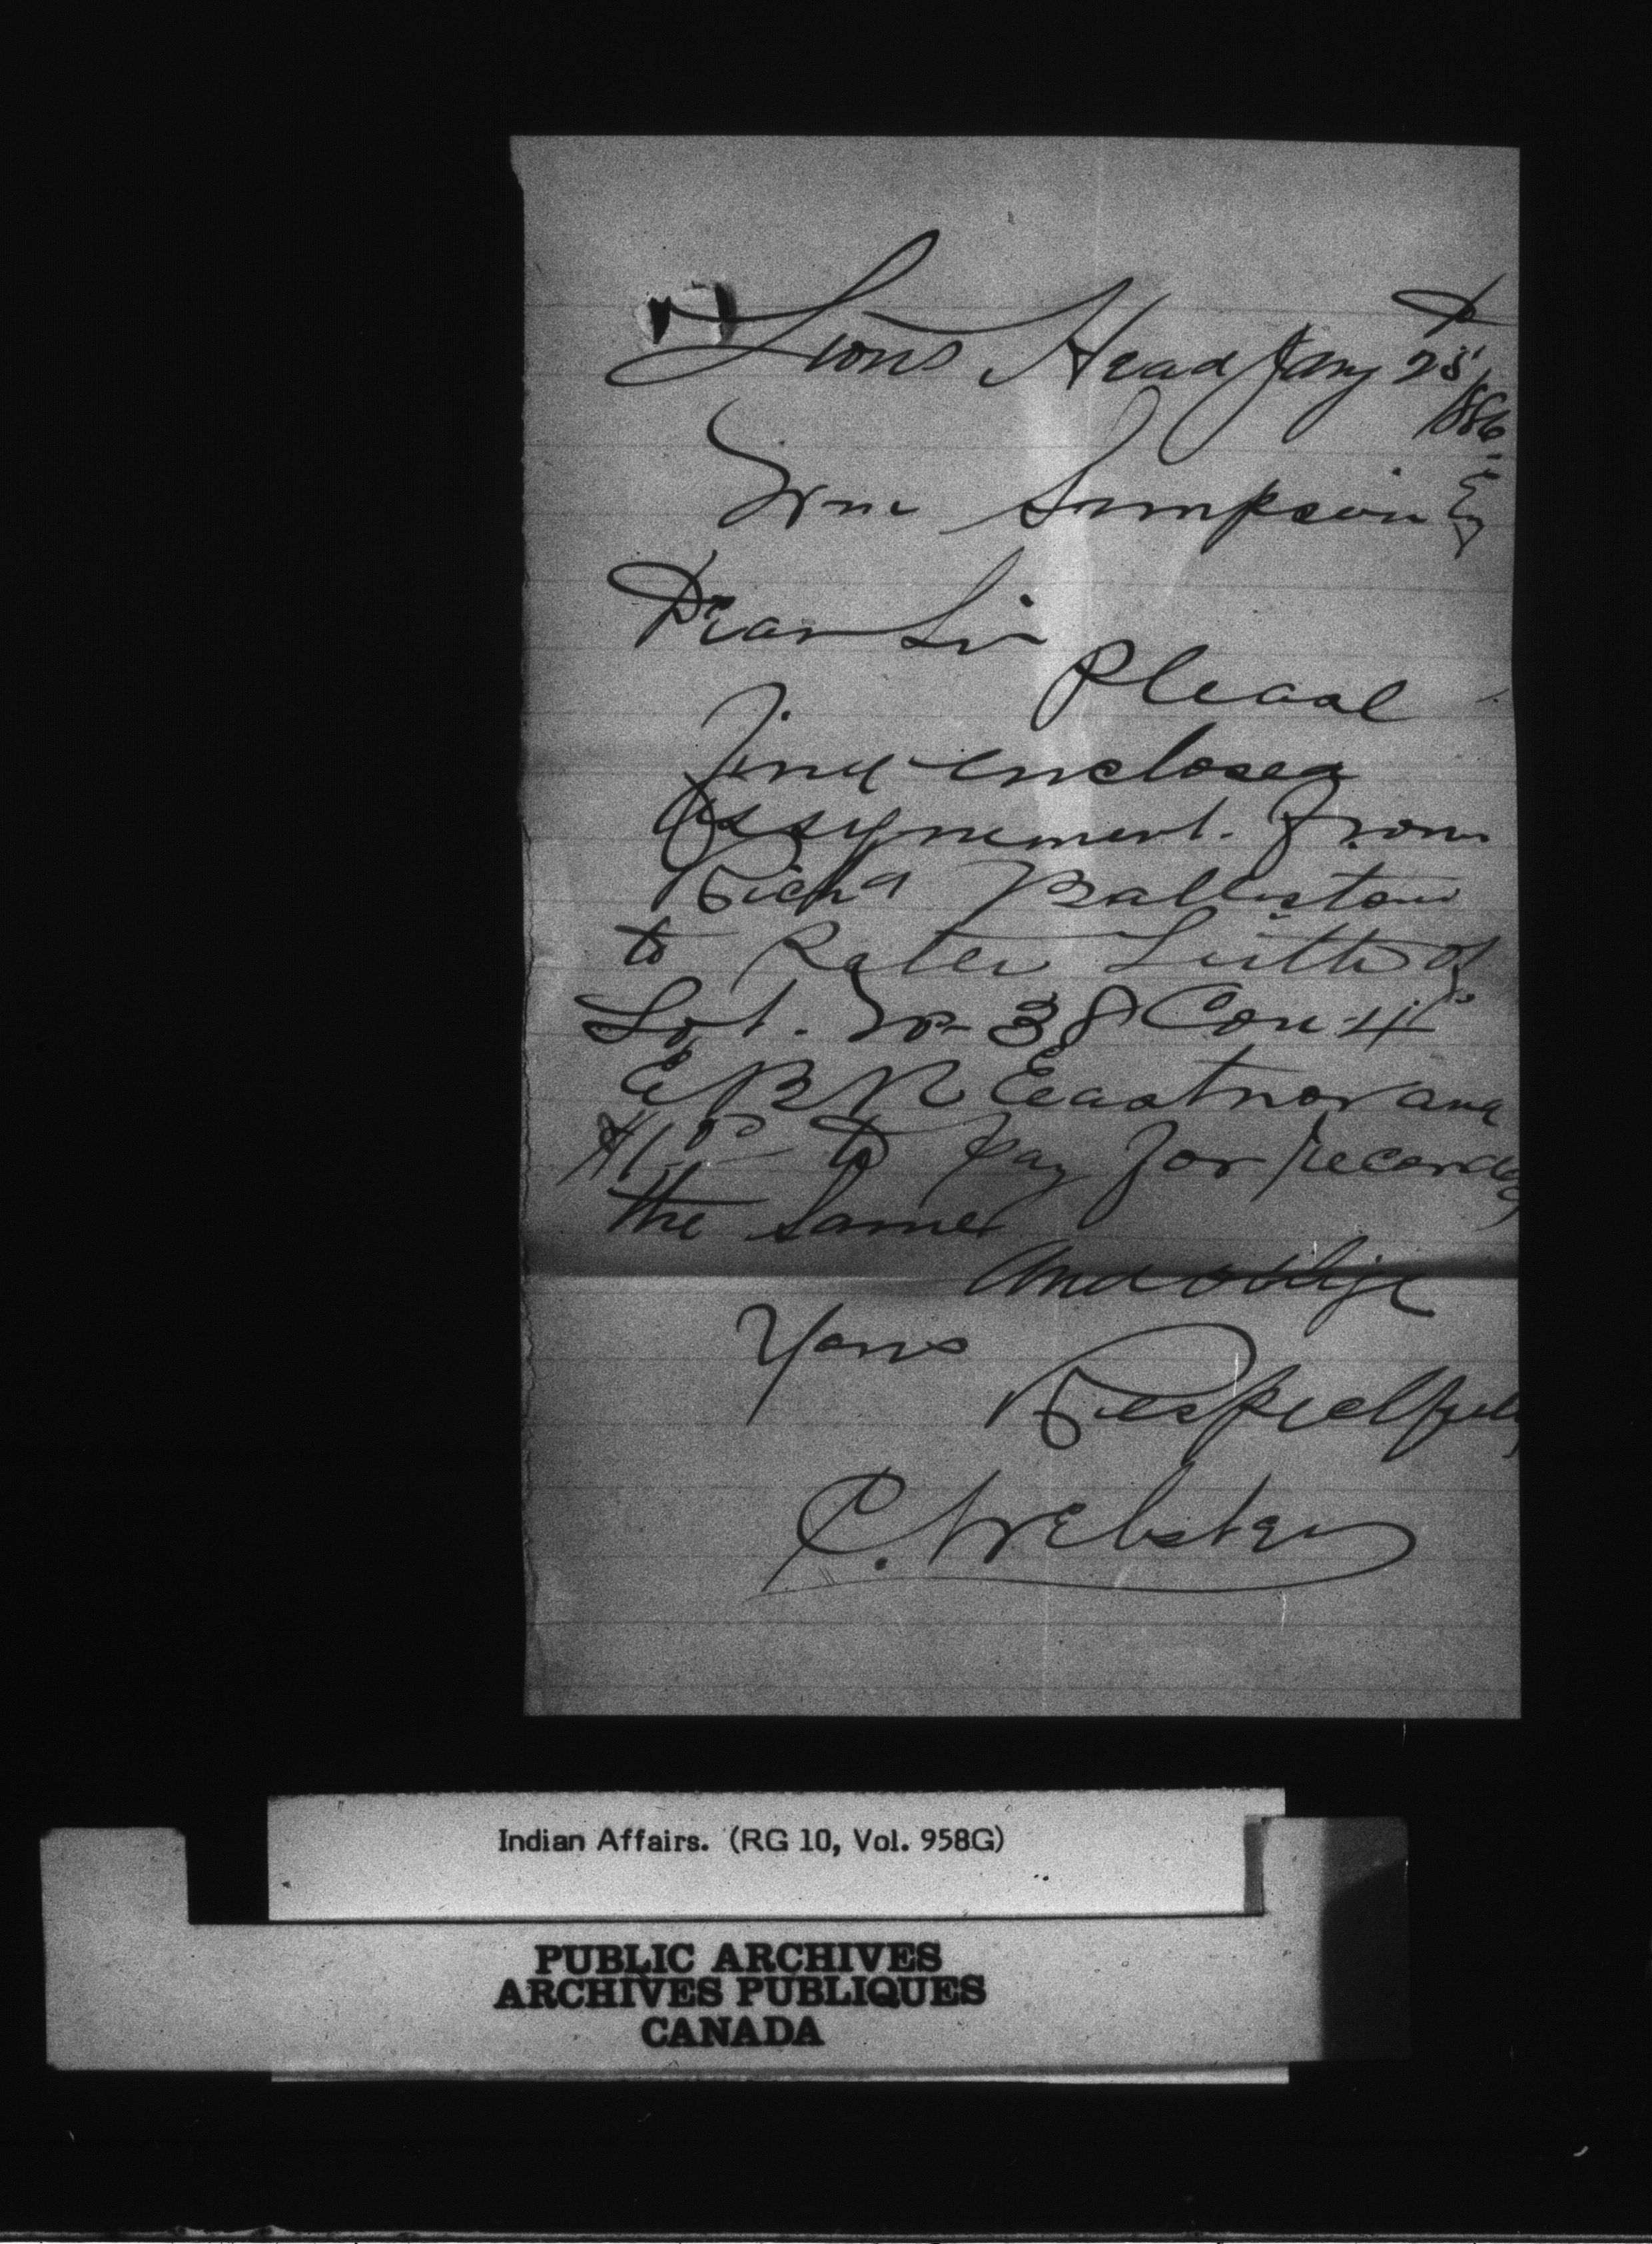 Lions Head Jany 25th
1886
Wm Simpson Esq
Dear Sir
Please
find enclosed
Assynement. From
Richd Ballistou
to Peter Leith of
Lot. No 38 Con 4
E B R Eeastnor and
$1.00 to pay for recording
the same
And oblige
Yours
Respectfully
C. Webster
Indian Affairs. (RG 10, Vol. 958G)
PUBLIC ARCHIVES
ARCHIVES PUBLIQUES
CANADA